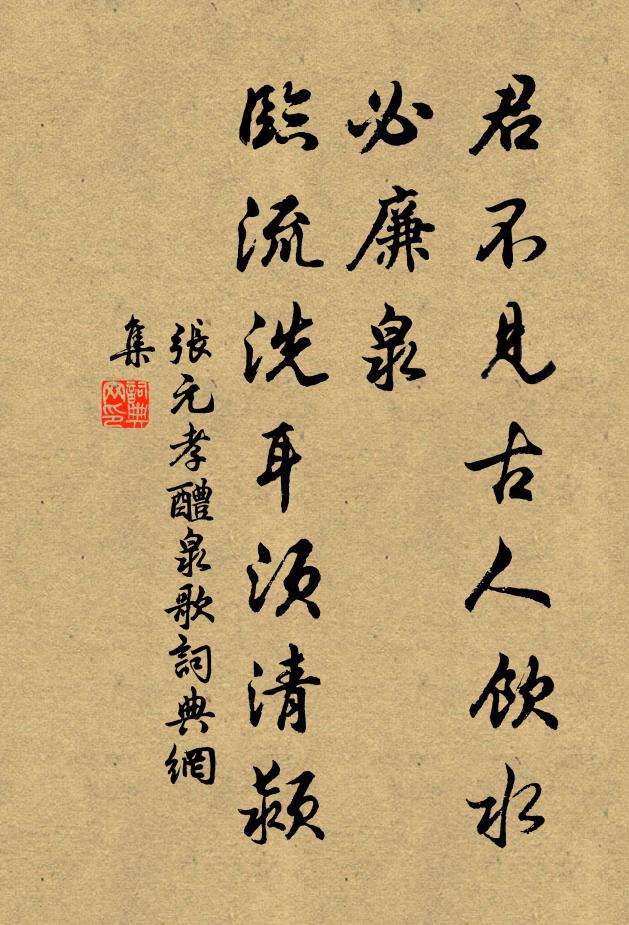 君不見古人飲水
必廉泉
臨流洗耳須清潁
張元孝醴泉歌詞典網
集
詞典網印